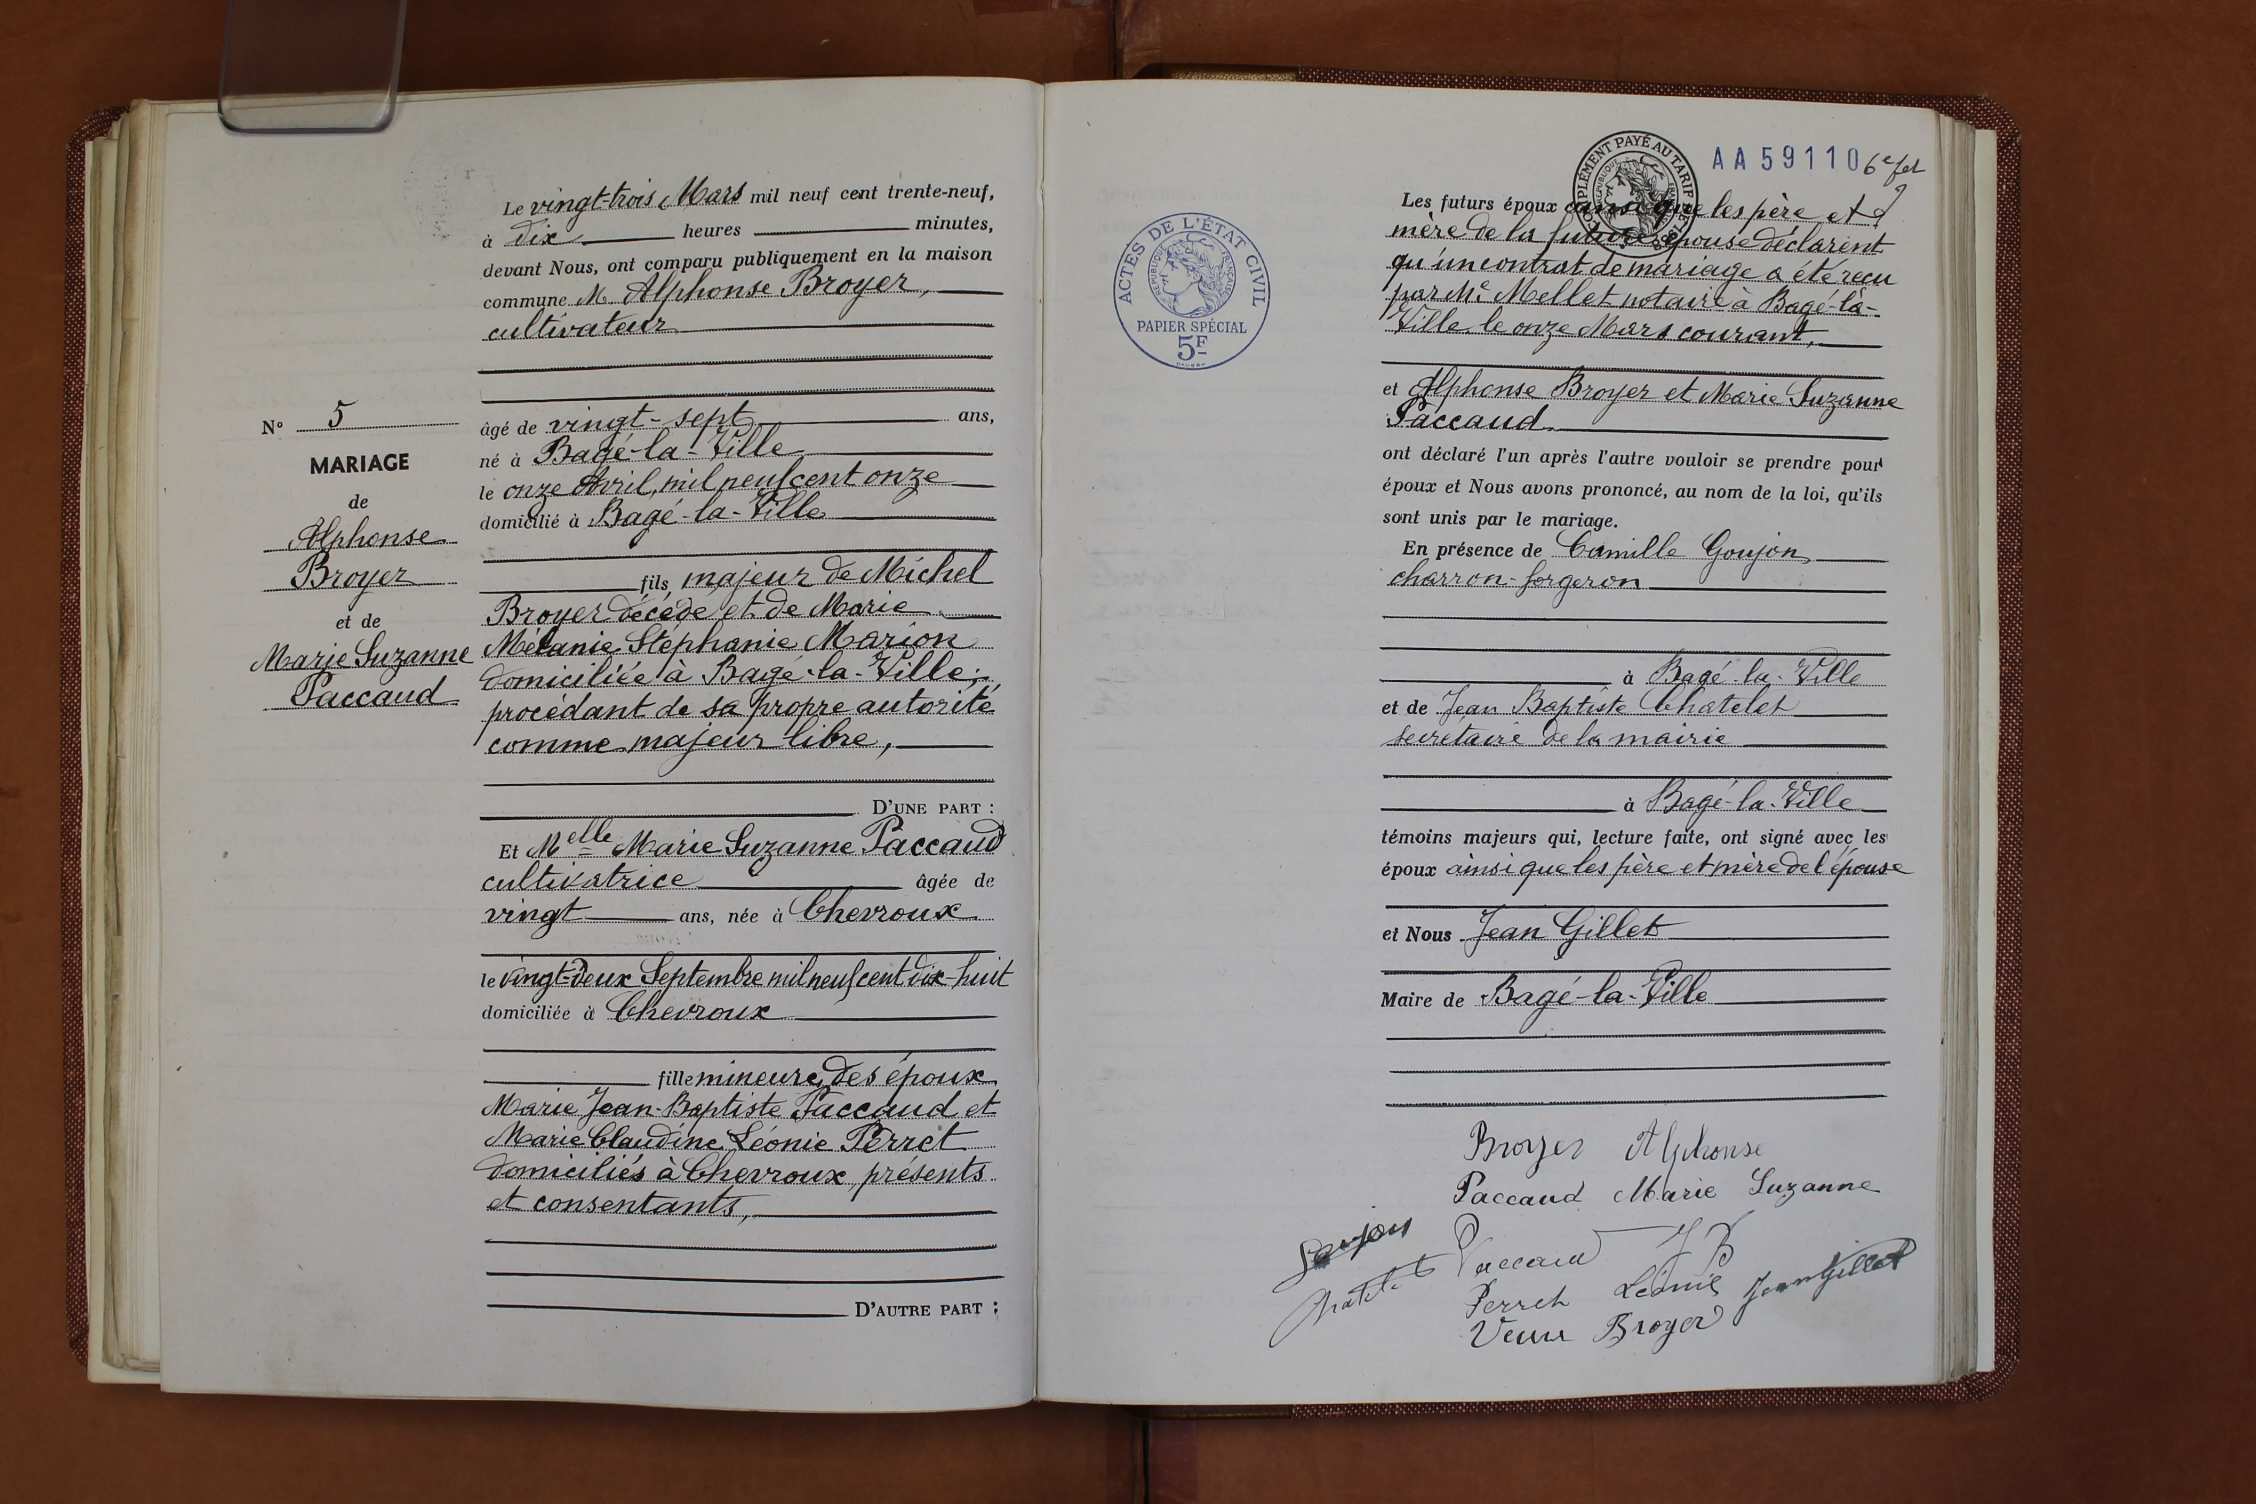 Le vingt-trois Mars mil neuf cent trente-neuf,
à dix heures minutes,
devant Nous, ont comparu publiquement en la maison
commune M Alphonse Broyer,
cultivateur
N° 5
MARIAGE
de
Alphonse
Broyer
et de
Marie Suzanne
Paccaud
âgé de vingt-sept ans,
né à Bagé-la-Ville
le onze Avril, mil neuf cent onze
domicilié à Bagé-la-Ville
fils majeur de Michel
Broyer décédé et de Marie
Mélanie Stéphanie Marion
domiciliée à Bagé-la-Ville;
procédant de sa propre autorité
comme majeur libre,
D'UNE PART :
Et Melle Marie Suzanne Paccaud
cultivatrice âgée de
vingt ans, née à Chevroux
le vingt-deux Septembre mil neuf cent dix-huit
domiciliée à Chevroux
fille mineure, des époux
Marie Jean-Baptiste Paccaud et
Marie Claudine Léonie Perret
domiciliés à Chevroux, présents
et consentants,
D'AUTRE PART :
ACTES DE L'ÉTAT CIVIL
RÉPUBLIQUE FRANÇAISE
PAPIER SPÉCIAL
5F
COMPLÉMENT PAYÉ AU TARIF DE 1938
AA59110 6e fet
Les futurs époux ainsi que les père et
mère de la future épouse déclarent
qu'un contrat de mariage a été reçu
par Me Mellet notaire à Bagé-la-
Ville, le onze Mars courant,
et Alphonse Broyer et Marie Suzanne
Paccaud
ont déclaré l'un après l'autre vouloir se prendre pour
époux et Nous avons prononcé, au nom de la loi, qu'ils
sont unis par le mariage.
En présence de Camille Goujon
charron-forgeron
à Bagé-la-Ville
et de Jean Baptiste Chatelet
secrétaire de la mairie
à Bagé-la-Ville
témoins majeurs qui, lecture faite, ont signé avec les
époux ainsi que les père et mère de l'épouse
et Nous Jean Gillet
Maire de Bagé-la-Ville
Broyer Alphonse
Paccaud Marie Suzanne
Goujon
Paccaud J B
Chatelet
Perret Léonie Jean Gillet
Veuve Broyer